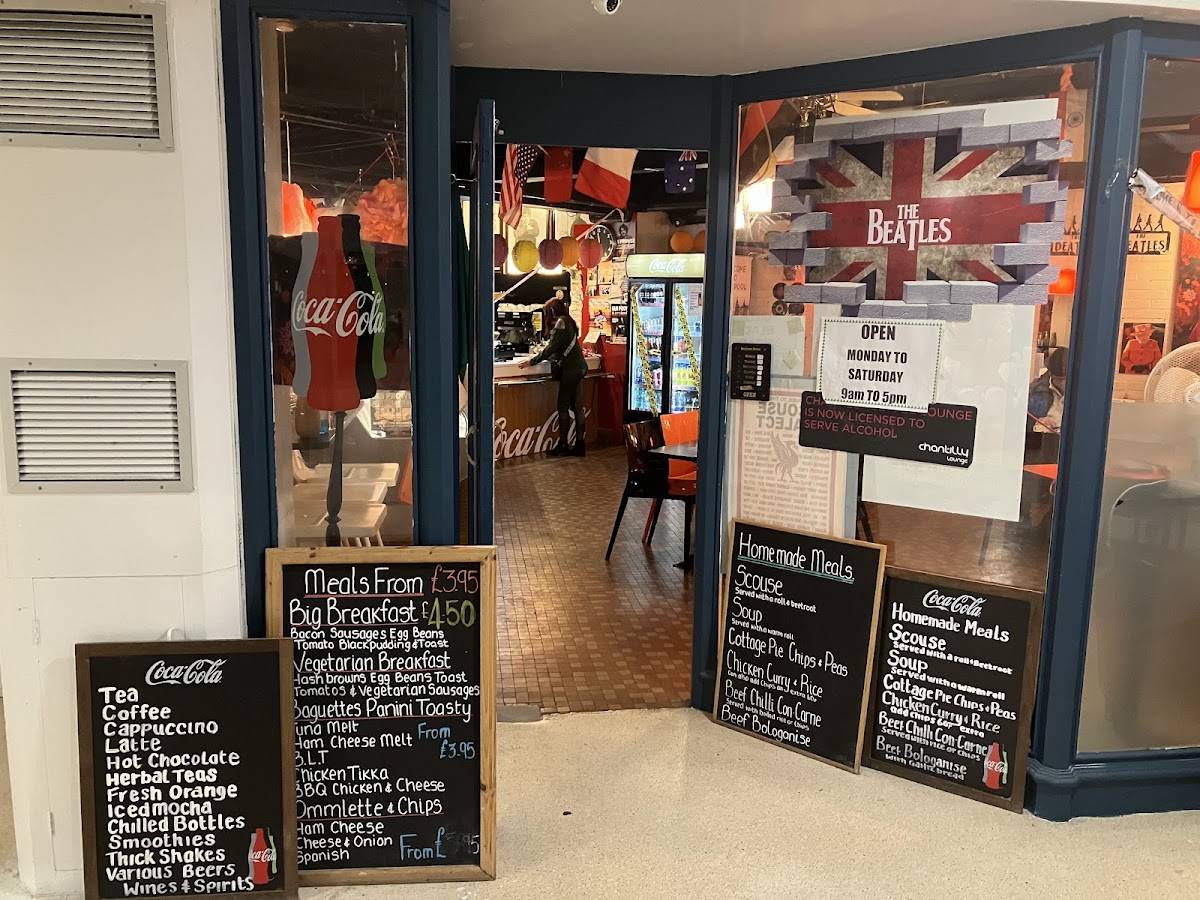 Coca-Cola
Coca-Cola
Coca-Cola
THE
BEATLES
BEATLES
OPEN
MONDAY TO
SATURDAY
9am TO 5pm
LOUNGE
IS NOW LICENSED TO
SERVE ALCOHOL
chantilly
Lounge
Coca-Cola
Tea
Coffee
Cappuccino
Latte
Hot Chocolate
Herbal Teas
Fresh Orange
Iced mocha
Chilled Bottles
Smoothies
Thick Shakes
Various Beers
Wines & Spirits
Meals From £3.95
Big Breakfast £4.50
Bacon Sausages Egg Beans
Tomato Blackpudding & Toast
Vegetarian Breakfast
Hash browns Egg Beans Toast
Tomatos & Vegetarian Sausages
Baguettes Panini Toasty
Tuna Melt
Ham Cheese Melt
From
£3.95
B.L.T
Chicken Tikka
BBQ Chicken & Cheese
Ommlette & Chips
Ham Cheese
Cheese & Onion
Spanish
From £
Homemade Meals
Scouse
Served with a roll & beetroot
Soup
Served with a warm roll
Cottage Pie Chips & Peas
Chicken Curry & Rice
Can also add Chips an extra 60p
Beef Chilli Con Carne
Served with boiled rice or chips
Beef Bologanise
Coca-Cola
Homemade Meals
Scouse
Served with a roll & Beetroot
Soup
Served with a warm roll
Cottage Pie Chips & Peas
Chicken Curry & Rice
Add chips 60p extra
Beef Chilli Con Carne
Served with rice or chips
Beef Bologanise
with Garlic bread